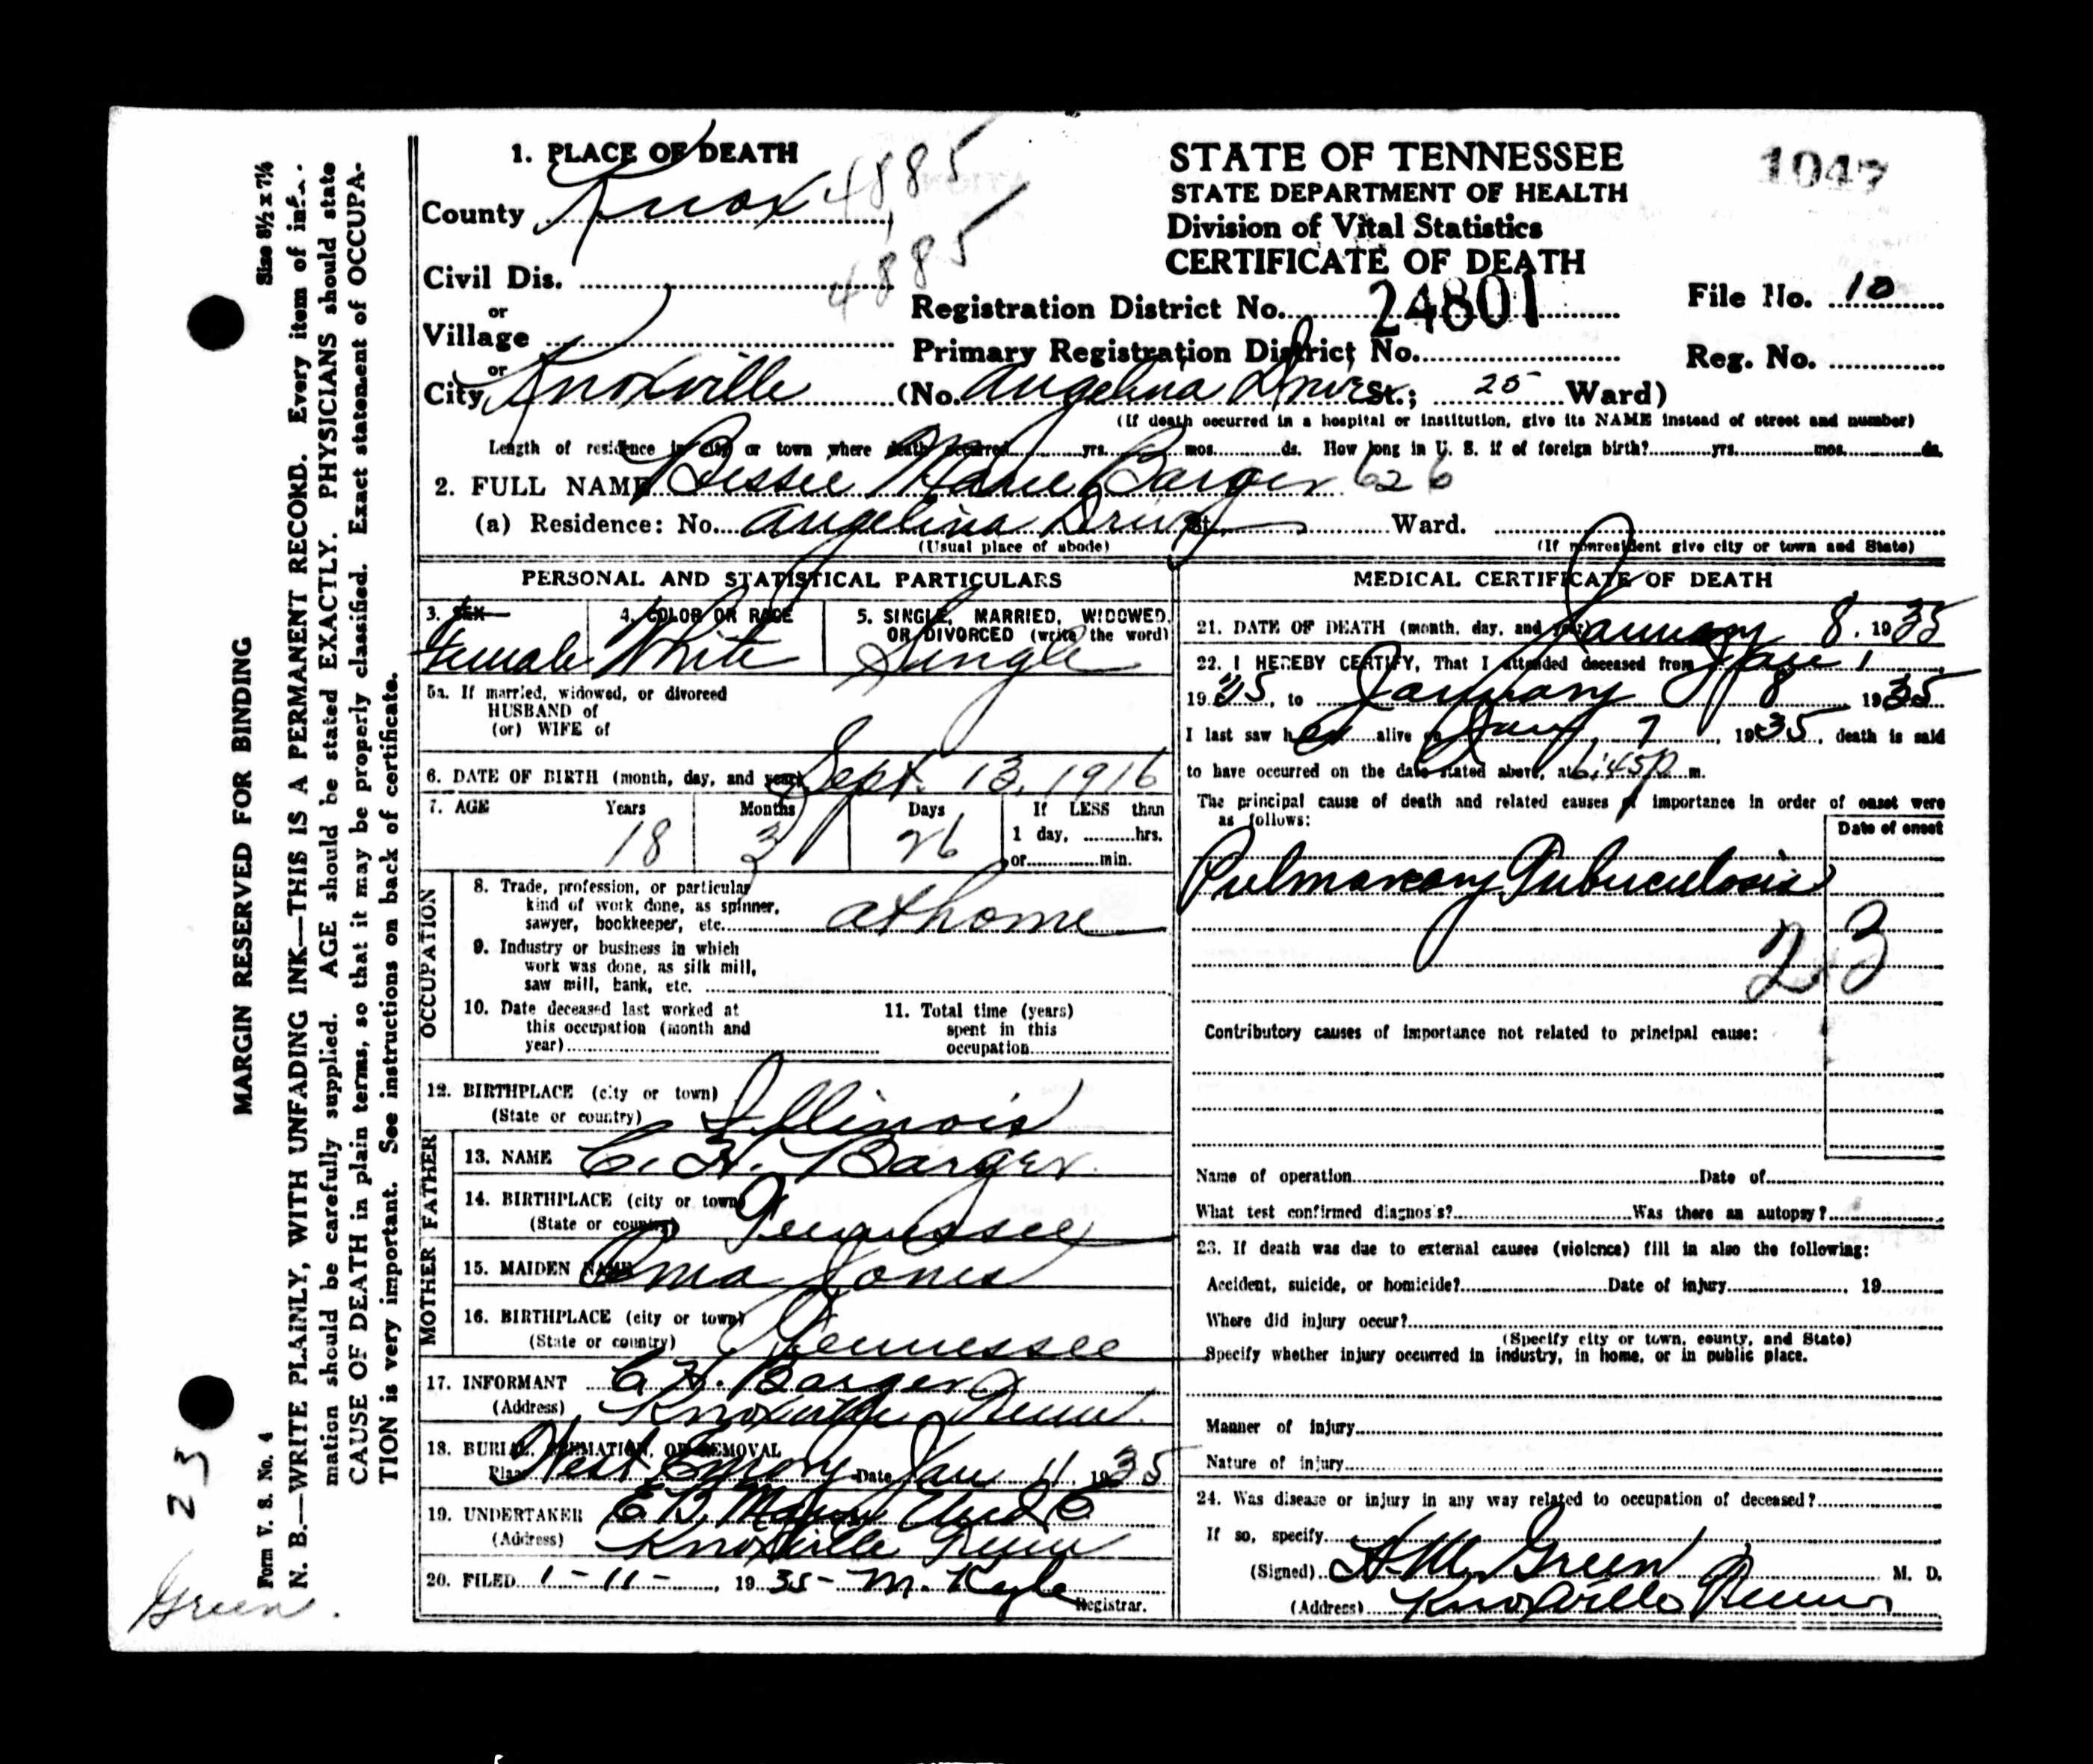 1. PLACE OF DEATH
County Knox 4885
4885
Civil Dis.
or
Village
or
City Knoxville (No. Angelina Drive St.; 25 Ward)
STATE OF TENNESSEE
STATE DEPARTMENT OF HEALTH
Division of Vital Statistics
CERTIFICATE OF DEATH
1047
Registration District No. 24801
File No. 10
Primary Registration District No.
Reg. No.
(If death occurred in a hospital or institution, give its NAME instead of street and number)
Length of residence in city or town where death occurred yrs. mos. ds. How long in U. S. if of foreign birth? yrs. mos. ds.
2. FULL NAME Bessie Marie Barger 626
(a) Residence: No. Angelina Drive St. Ward.
(Usual place of abode) (If nonresident give city or town and State)
PERSONAL AND STATISTICAL PARTICULARS
3. SEX 4. COLOR OR RACE 5. SINGLE, MARRIED, WIDOWED,
OR DIVORCED (write the word)
Female White Single
5a. If married, widowed, or divorced
HUSBAND of
(or) WIFE of
6. DATE OF BIRTH (month, day, and year) Sept. 13, 1916
7. AGE Years Months Days If LESS than
18 3 26 1 day, hrs.
or min.
OCCUPATION
8. Trade, profession, or particular
kind of work done, as spinner,
sawyer, bookkeeper, etc. at home
9. Industry or business in which
work was done, as silk mill,
saw mill, bank, etc.
10. Date deceased last worked at
this occupation (month and
year)
11. Total time (years)
spent in this
occupation
12. BIRTHPLACE (city or town)
(State or country) Illinois
FATHER
13. NAME C. H. Barger
14. BIRTHPLACE (city or town)
(State or country) Tennessee
MOTHER
15. MAIDEN NAME Oma Jones
16. BIRTHPLACE (city or town)
(State or country) Tennessee
17. INFORMANT C. H. Barger
(Address) Knoxville Tenn.
18. BURIAL, CREMATION, OR REMOVAL
Place West Emory Date Jan 11 1935
19. UNDERTAKER E B Mann Und Co
(Address) Knoxville Tenn
20. FILED 1-11-, 1935- M. Kyle
Registrar.
MEDICAL CERTIFICATE OF DEATH
21. DATE OF DEATH (month, day, and year) January 8, 1935
22. I HEREBY CERTIFY, That I attended deceased from Jan 1
1935, to January 8 1935
I last saw her alive on Jan 7, 1935, death is said
to have occurred on the date stated above, at 6:45 p m.
The principal cause of death and related causes of importance in order of onset were
as follows:
Date of onset
Pulmonary Tuberculosis
23
Contributory causes of importance not related to principal cause:
Name of operation Date of
What test confirmed diagnosis? Was there an autopsy?
23. If death was due to external causes (violence) fill in also the following:
Accident, suicide, or homicide? Date of injury, 19
Where did injury occur?
(Specify city or town, county, and State)
Specify whether injury occurred in industry, in home, or in public place.
Manner of injury
Nature of injury
24. Was disease or injury in any way related to occupation of deceased?
If so, specify
(Signed) H. M. Green M. D.
(Address) Knoxville Tenn
MARGIN RESERVED FOR BINDING
Size 8½ x 7¼
N. B.—WRITE PLAINLY, WITH UNFADING INK—THIS IS A PERMANENT RECORD. Every item of infor-
mation should be carefully supplied. AGE should be stated EXACTLY. PHYSICIANS should state
CAUSE OF DEATH in plain terms, so that it may be properly classified. Exact statement of OCCUPA-
TION is very important. See instructions on back of certificate.
Form V. S. No. 4
23
Green.